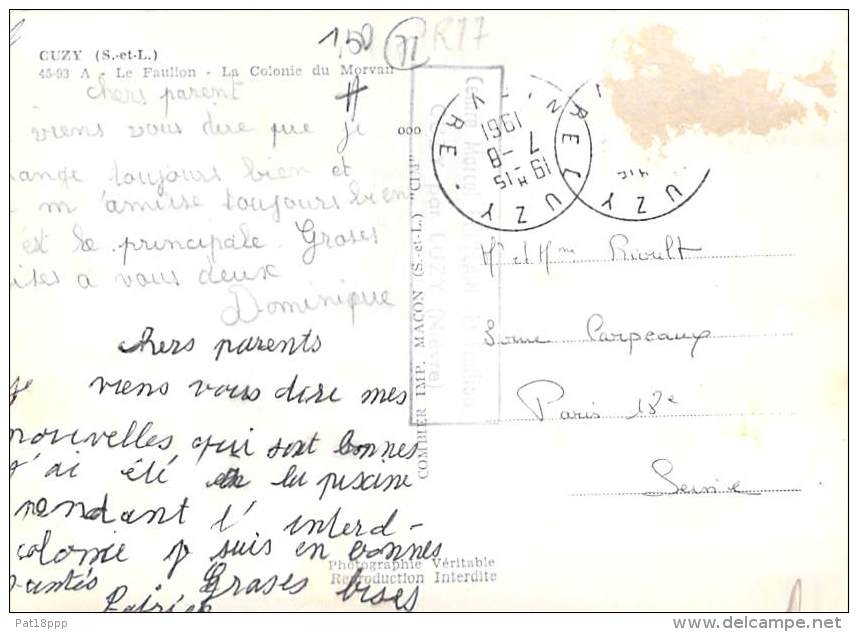 1,50 71 R77
CUZY (S.-et-L.)
45-93 A - Le Faulion - La Colonie du Morvan
chers parent
viens vous dire que je
ange toujours bien et
m'amuse toujours bien
est le principale Groses
a vous deux
Dominique
chers parents
je viens vous dire mes
nouvelles qui sont bonnes
j'ai été a la piscine
pendant l'interd-
colonie je suis en bonnes
santés Groses bises
Patrick
COMBIER IMP. MACON (S.-et-L.) "CIM"
Photographie Véritable
Reproduction Interdite
Centre Marcel
LUZY (Nièvre)
LUZY
19 H 15
7 - 8
1961
NIEVRE
LUZY
Mr et Mme Rioult
Carpeaux
Paris 18e
Seine
Pat18ppp
www.delcampe.net